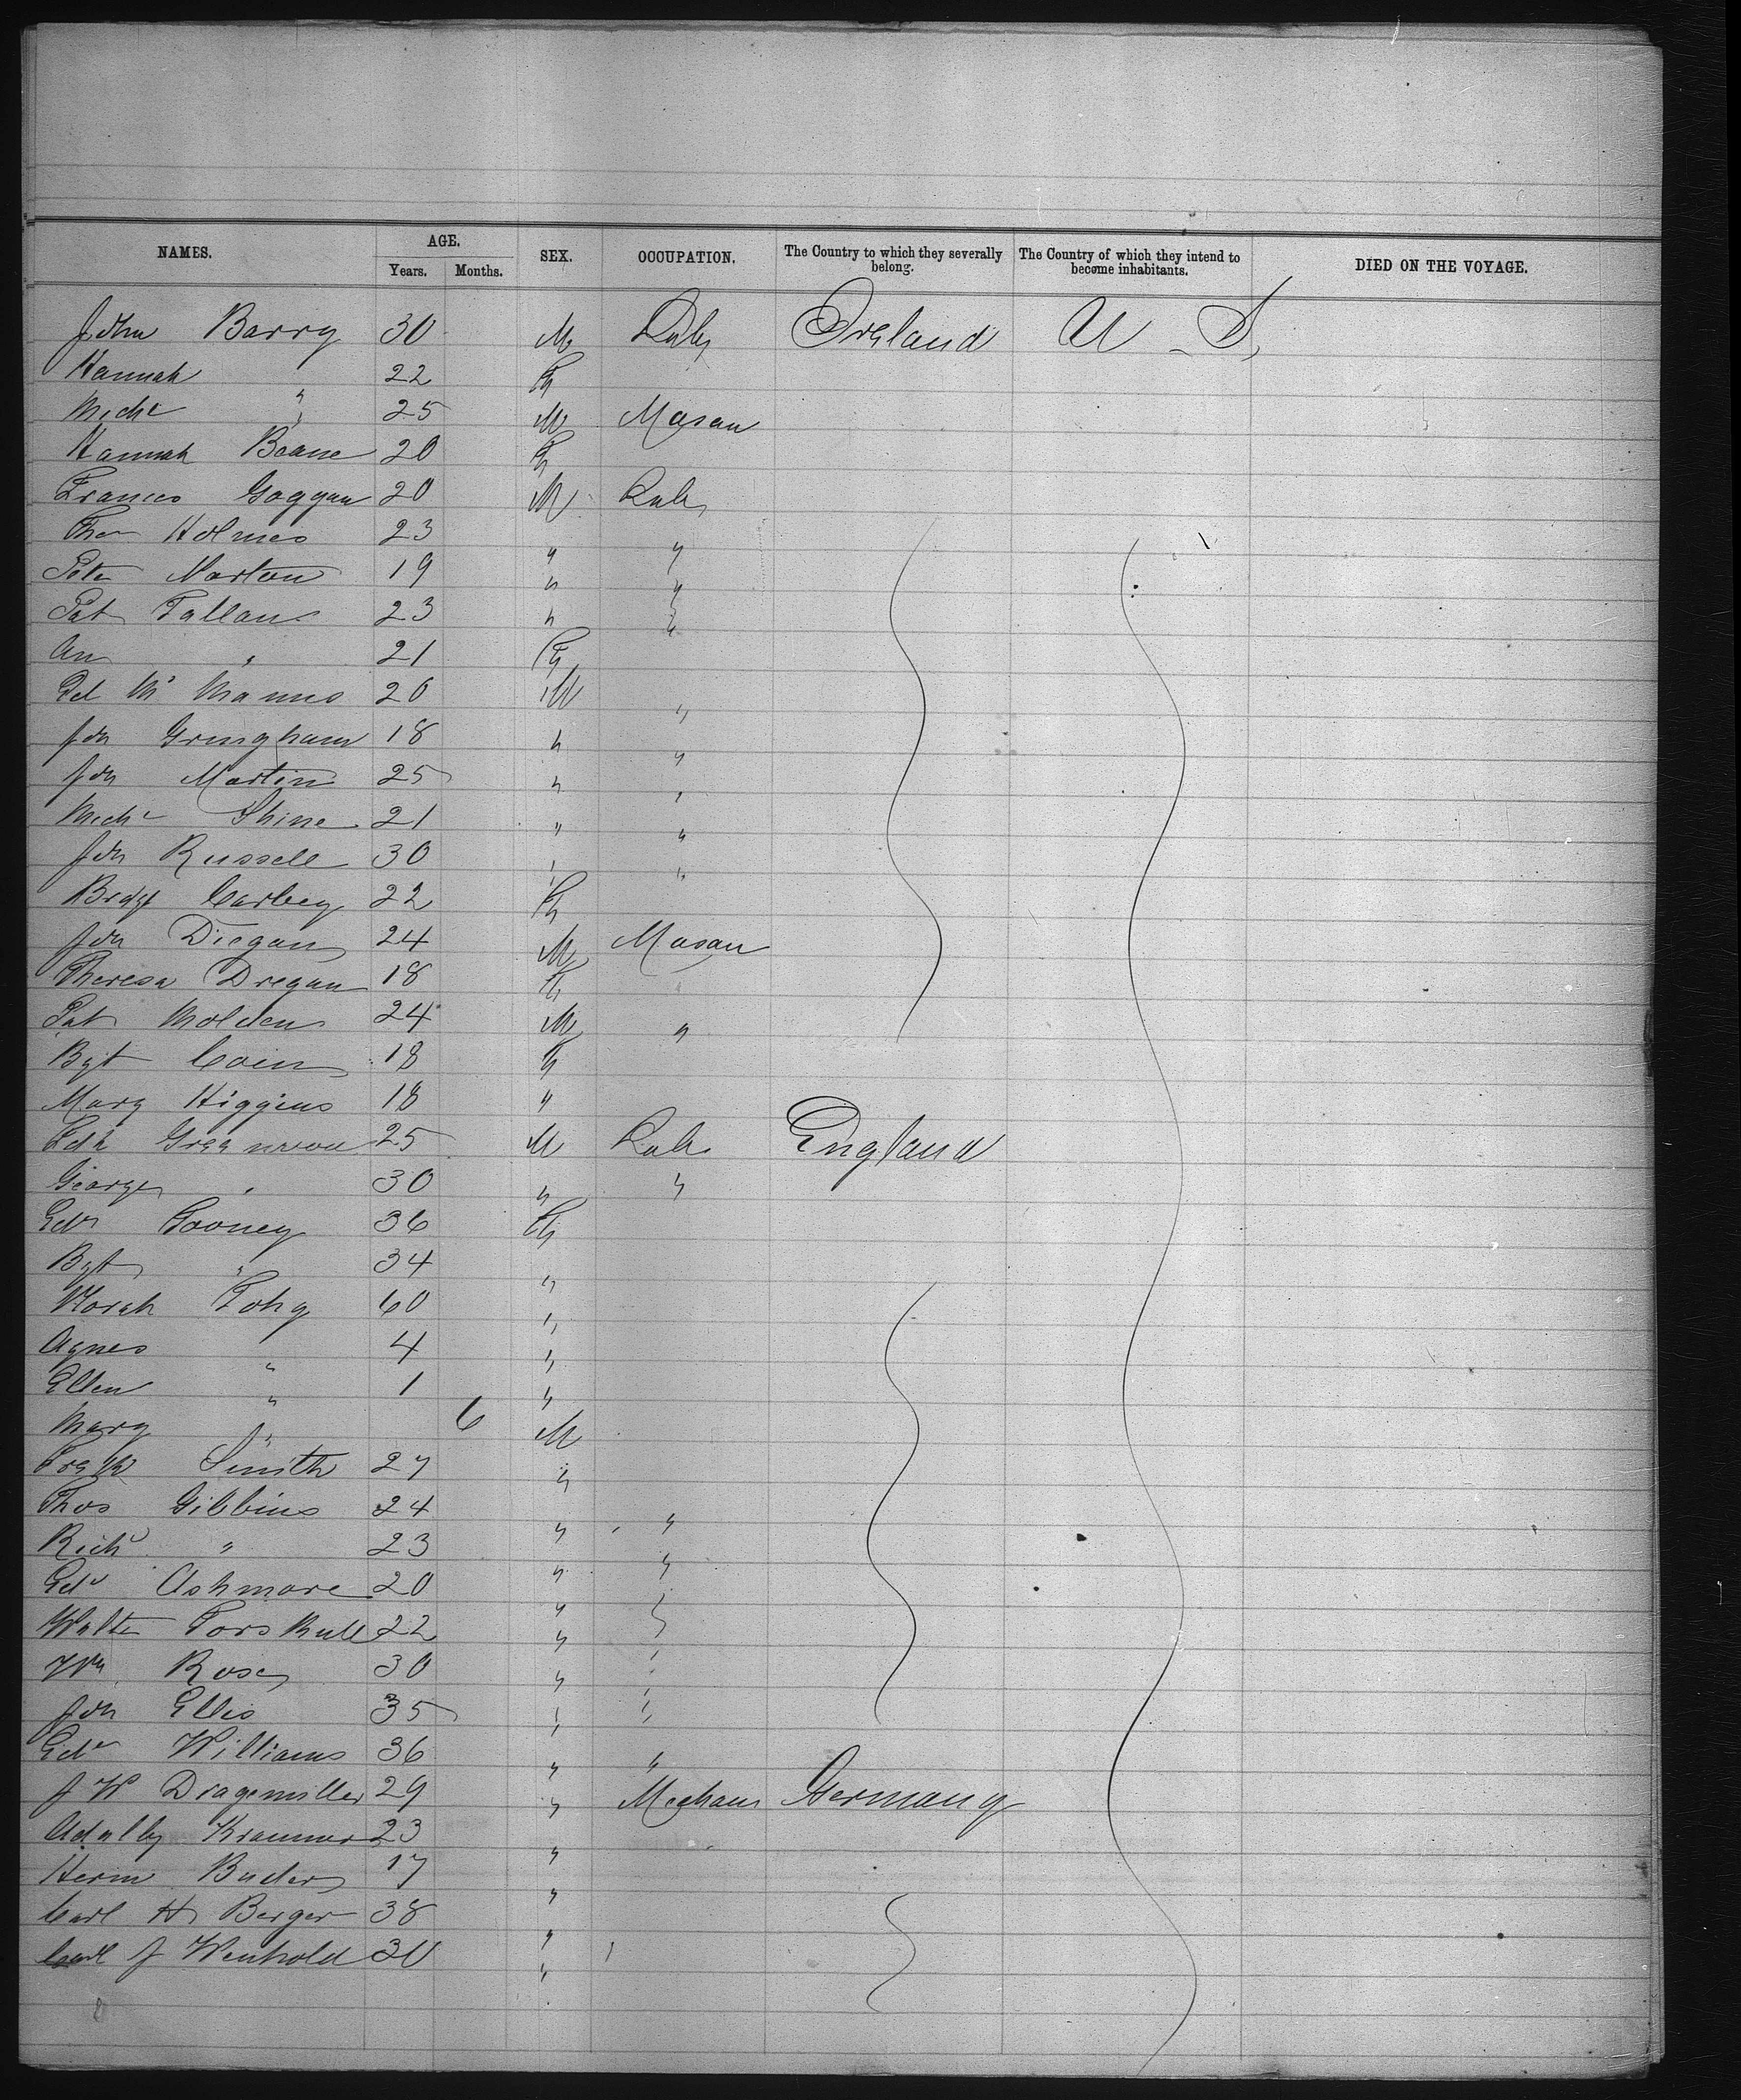 NAMES. AGE. SEX. OCCUPATION. The Country to which they severally belong. The Country of which they intend to become inhabitants. DIED ON THE VOYAGE.
Years. Months.
John Barry 30 M Lab Ireland U - S,
Hannah 22 F
Michl " 25 M Mason
Hannah Beane 20 F
Frances Goggan 20 M Lab
Thos Holmes 23 " "
Peter Norton 19 " "
Pat Fallan 23 " "
An " 21 F
Pat Mc Manus 20 M "
Jon Gringham 18 " "
Jon Martin 25 " "
Michl Shine 21 " "
Jon Russell 30 " "
Bridgt Carbey 22 F
Jon Diegan 24 M Mason
Theresa Dregan 18 F
Pat Molden 24 M "
Bgt Coin 18 F
Mary Higgins 18 "
Edd Greenwood 25 M Lab England
George " 30 " "
Edn Cooney 36 F
Bgt " 34 "
Norah Fohy 60 "
Agnes " 4 "
Ellen " 1 "
Mary " 6 M
Frank Smith 27 "
Thos Gibbins 24 " "
Richd " 23 " "
Edd Ashmore 20 " "
Walter Fors Bull 22 " "
Wm Rose 30 " "
Jon Ellis 35 " "
Edd Williams 36 " "
J W Dragemiller 29 " Mechan Germany
Kraemer 23 "
Herm Buder 17 "
Carl H Berger 38 "
Carl J Wenhold 30 "